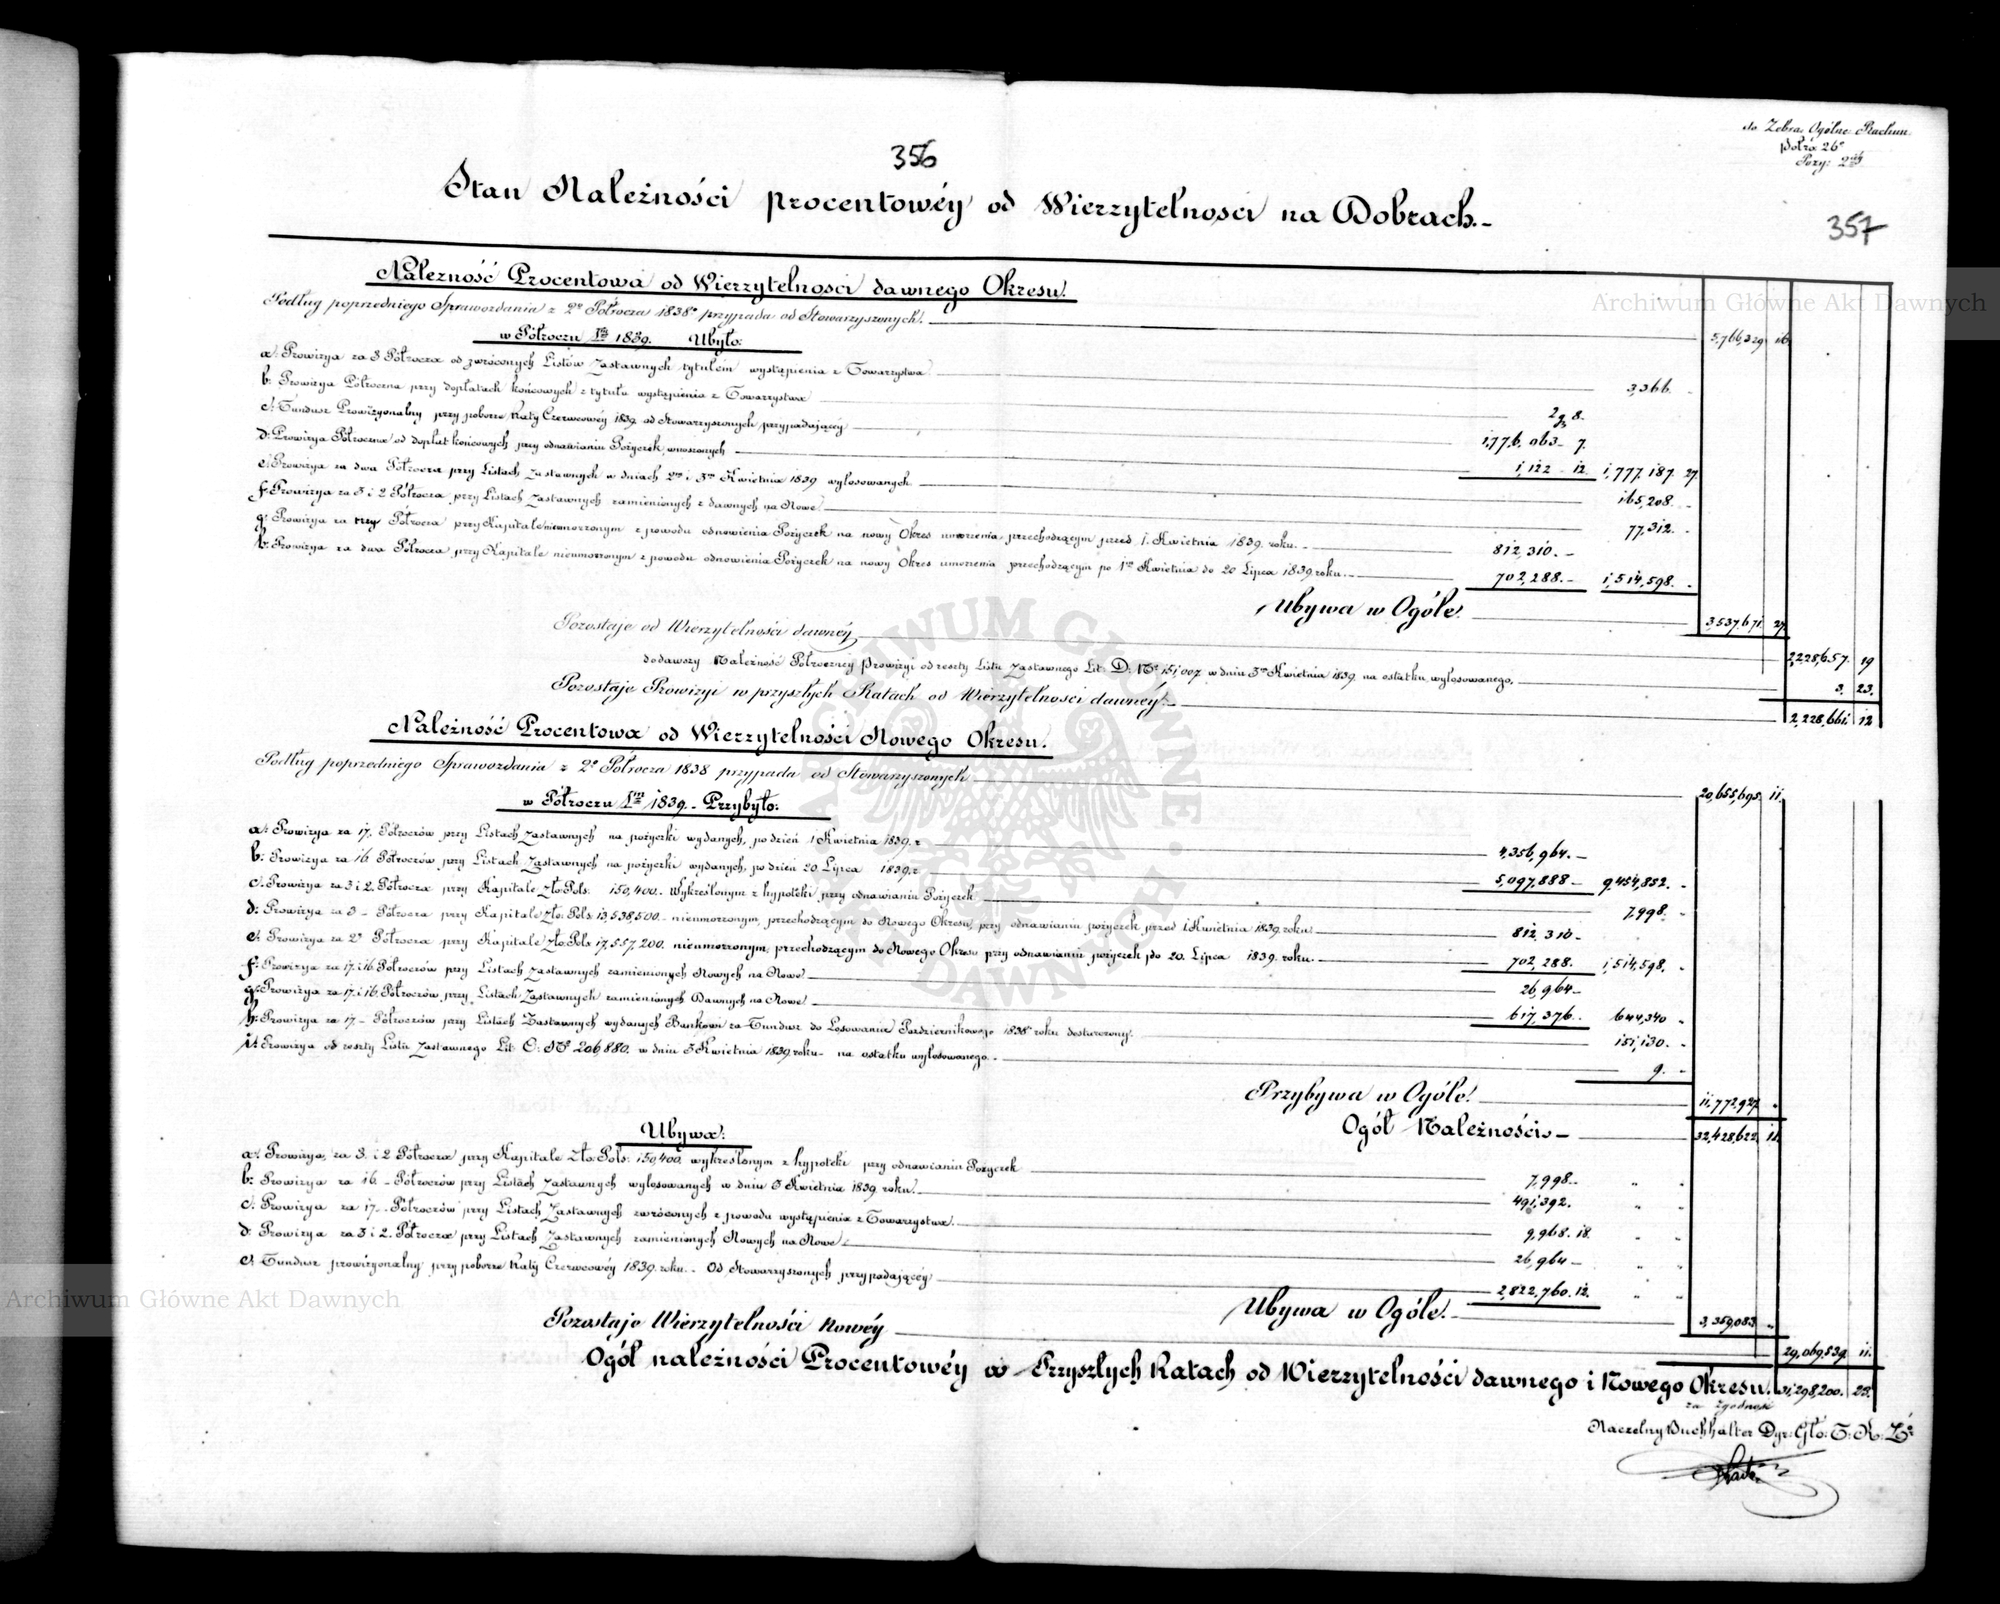 do Zebra: Ogólne. Rachun.
Półro: 26º
Pozy: 2
356
Stan Należności procentowéy od Wierzytelności na Dobrach.
357
Należność Procentowa od Wierzytelnosci dawnego Okresu.
Podług poprzedniego Sprawozdania z 2º Półrocza 1838º przypada od Stowarzyszonych. 5,766,329 16.
w Półroczu 1m 1839. Ubyło:
a: Prowizya za 3 Półrocza od zwróconych Listów Zastawnych tytułem wystąpienia z Towarzystwa 3,366. -
b: Prowizya Półroczna przy dopłatach końcowych z tytułu wystąpienia z Towarzystwa 2 8.
c: Fundusz Prowizyonalny przy poborze Raty Czerwcowéy 1839. od Stowarzyszonych przypadającéy 1,776,063 - 7.
d: Prowizya Półroczna od dopłat końcowych przy odnawianiu Pożyczek wnoszonych 1,122 - 12 1,777,187. 27.
e: Prowizya za dwa Półrocza przy Listach Zastawnych w dniach 2m i 3m Kwietnia 1839 wylosowanych 165,208. -
f: Prowizya za 3 i 2 Półrocza przy Listach Zastawnych zamienionych z dawnych na Nowe 77,312. -
g: Prowizya za trzy Półrocza przy Kapitale nieumorzonym z powodu odnowienia Pożyczek na nowy Okres umorzenia przechodzącym przed 1. Kwietnia 1839. roku. 812,310. -
h: Prowizya za dwa Półrocza, przy Kapitale nieumorzonym z powodu odnowienia Pożyczek na nowy Okres umorzenia przechodzącym po 1m Kwietnia do 20 Lipca 1839 roku. 702,288. - 1,514,598. -
Ubywa w Ogóle. 3,537,671. 27.
Pozostaje od Wierzytelności dawnéy 2,228,657. 19
dodawszy Należność Półroczney Prowizyi od reszty Listu Zastawnego Lit: D: Nº 151,007 w dniu 3m Kwietnia 1839. na ostatku wylosowanego, 3. 23.
Pozostaje Prowizyi w przyszłych Ratach od Wierzytelności dawnéy. 2,228,661. 12
Należność Procentowa od Wierzytelności Nowego Okresu.
Podług poprzedniego Sprawozdania z 2º Półrocza 1838 przypada od Stowarzyszonych 20,655,695. 11.
w Półroczu 1m 1839. Przybyło:
a: Prowizya za 17. Półroczów przy Listach Zastawnych na pożyczki wydanych, po dzień 1 Kwietnia 1839. r. 4,356,964. -
b: Prowizya za 16 Półroczów przy Listach Zastawnych na pożyczki wydanych, po dzień 20 Lipca 1839. r. 5,097,888 - 9,454,852. -
c: Prowizya za 3 i 2. Półrocza przy Kapitale Zło: Pols: 150,400. wykreślonym z hypoteki przy odnawianiu Pożyczek 7,998. -
d: Prowizya za 3 - Półrocza przy Kapitale Zło: Pols 13,538,500. - nieumorzonym, przechodzącym do Nowego Okresu, przy odnawianiu pożyczek przed 1 Kwietnia 1839. roku. 812,310 -
e: Prowizya za 2º Półrocza przy Kapitale Zło: Pols 17,557,200. nieumorzonym, przechodzącym do Nowego Okresu przy odnawianiu pożyczek po 20. Lipca 1839. roku. 702,288. 1,514,598. -
f: Prowizya za 17. i 16. Półroczów przy Listach Zastawnych zamienionych Nowych na Nowe 26,964 -
g: Prowizya za 17. i 16. Półroczów, przy Listach Zastawnych zamienionych Dawnych na Nowe 617,376. 644,340 -
h: Prowizya za 17 - Półroczów przy Listach Zastawnych wydanych Bankowi za Fundusz do Losowania Październikowego 1838º roku dostarczony. 151,130. -
i: Prowizya od reszty Listu Zastawnego Lit: C: Nº 206,880. w dniu 3 Kwietnia 1839 roku - na ostatku wylosowanego. 9. -
Przybywa w Ogóle. 11,772,927. -
Ogół Należności 32,428,622. 11.
Ubywa:
a: Prowizya, za 3. i 2 Półrocza przy Kapitale Zło: Pols: 150,400. wykreślonym z hypoteki przy odnawianiu Pożyczek 7,998. " -
b: Prowizya za 16. - Półroczów przy Listach Zastawnych wylosowanych w dniu 3 Kwietnia 1839. roku. 491,392. " -
c: Prowizya za 17. - Półroczów przy Listach Zastawnych zwróconych z powodu wystąpienia z Towarzystwa. 9,968. 18. " -
d: Prowizya za 3 i 2. Półrocza przy Listach Zastawnych zamienionych Nowych na Nowe 26,964 - " -
e: Fundusz prowizyonalny przy poborze Raty Czerwcowéy 1839. roku. Od Stowarzyszonych przypadającéy 2,822,760. 12. " -
Ubywa w Ogóle. 3,359,083 "
Pozostaje Wierzytelności Nowéy 29,069,539. 11.
Ogół należności Procentowéy w Przyszłych Ratach od Wierzytelności dawnego i Nowego Okresu. 31,298,200. 23.
za zgodność
Naczelny Buchhalter Dyr: Gło: T: K: Z:
Archiwum Główne Akt Dawnych
Archiwum Główne Akt Dawnych
ARCHIWUM GŁÓWNE AKT DAWNYCH